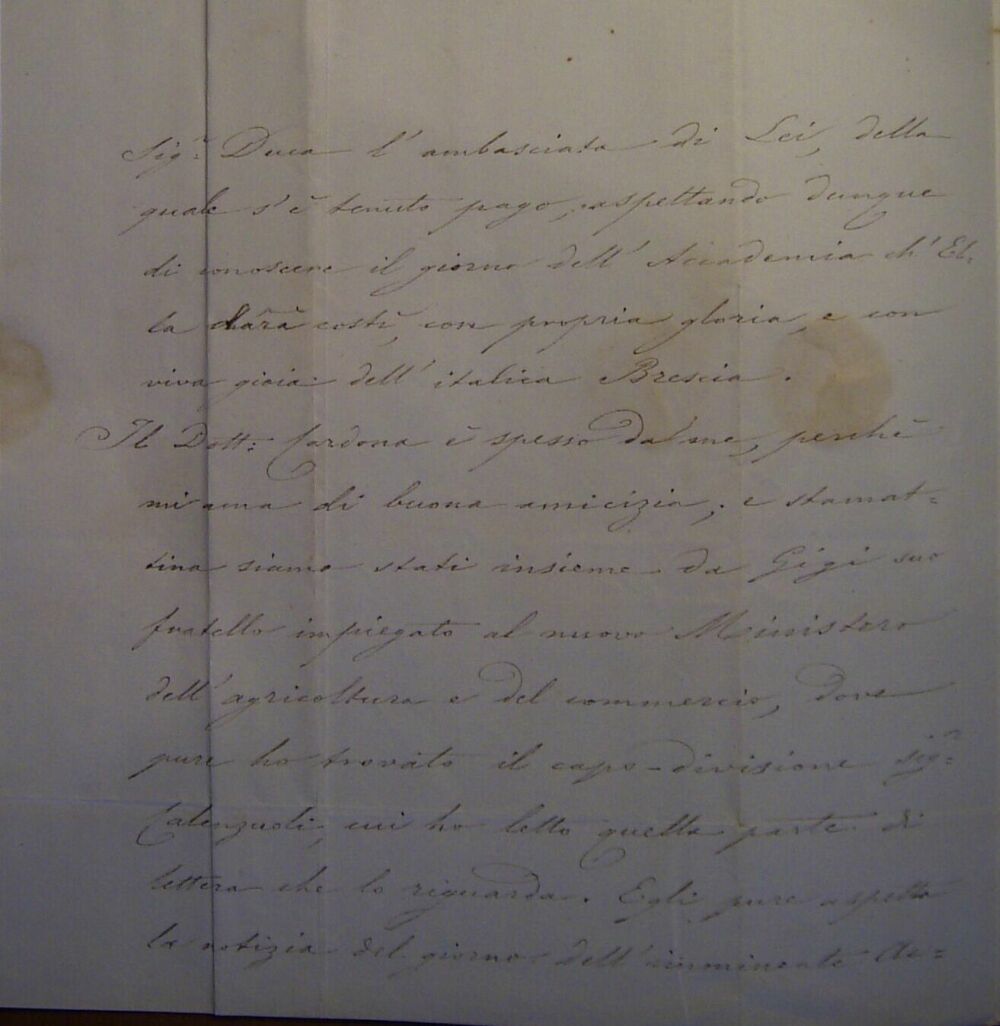 Sig.r Duca l'ambasciata di Lei, della
quale s'è tenuto pago, aspettando dunque
di conoscere il giorno dell'Accademia ch'El-
la darà costì, con propria gloria, e con
viva gioia dell'italica Brescia.
Il Dott: Cardona è spesso da me, perchè
mi ama di buona amicizia; e stamat=
tina siamo stati insieme da Gigi suo
fratello impiegato al nuovo Ministero
dell'agricoltura e del commercio, dove
pure ho trovato il capo-divisione sig.r
Calenzuoli, cui ho letto quella parte di
lettera che lo riguarda. Egli pure aspetta
la notizia del giorno dell'imminente Ac=